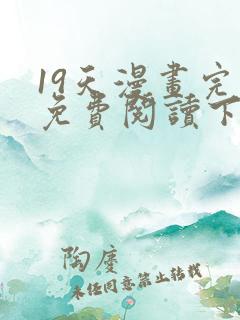 19天漫畫完
免費閱讀下
陶慶
未任同意禁止轉載